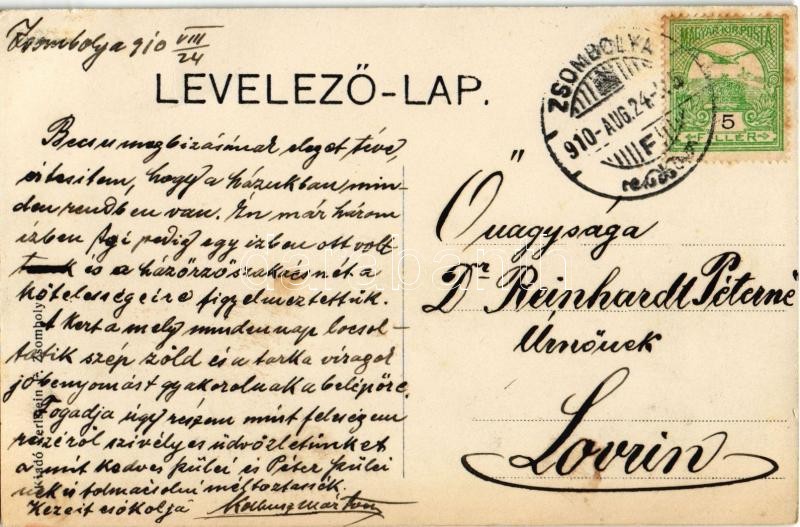 Zsombolya 910 VIII/24
LEVELEZŐ-LAP.
ZSOMBOLYA
910-AUG.24
F
MAGYAR KIR. POSTA
5
FILLÉR
Becses megbizásának eleget téve,
értesitem, hogy a házukban min-
den rendben van. Én már három
izben Ági pedig egy izben ott volt
és a házőrző szakácsnét a
kötelességeire figyelmeztettük.
A kert a mely mindennap locsol-
tatik szép zöld és a tarka virágok
jó benyomást gyakorolnak a belépőre.
Fogadja úgy részem mint feleségem
részéről szivélyes üdvözletünket
a mit kedves szülei és Péter szülei
nek is tolmácsolni méltóztassék.
Kezeit csókolja Márton
Őnagysága
Dr Reinhardt Péterné
Úrnőnek
Lovrin
Kiadó Perlstein F. Zsombolya
darabanth.com